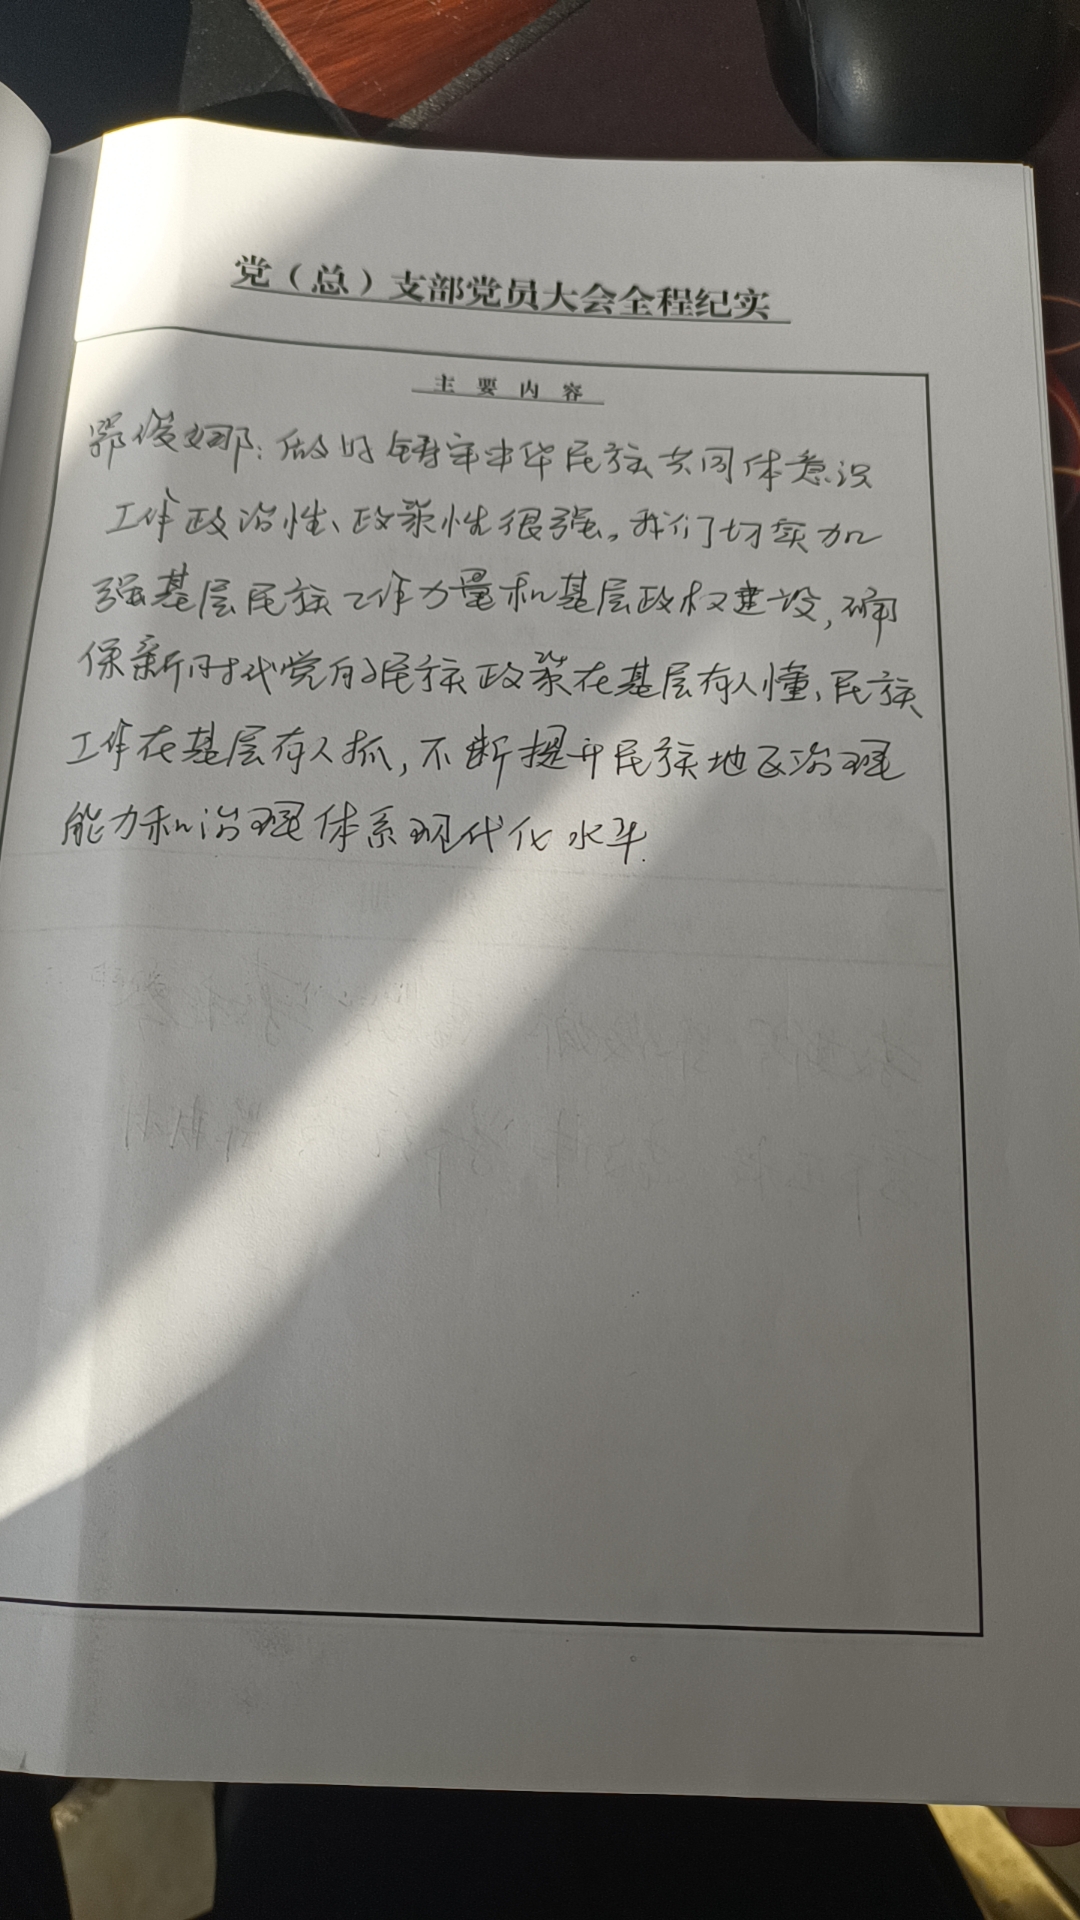 党（总）支部党员大会全程纪实
主要内容
鄂俊娜：做好铸牢中华民族共同体意识
工作政治性、政策性很强。我们切实加
强基层民族工作力量和基层政权建设，确
保新时代党的民族政策在基层有人懂、民族
工作在基层有人抓，不断提升民族地区治理
能力和治理体系现代化水平.